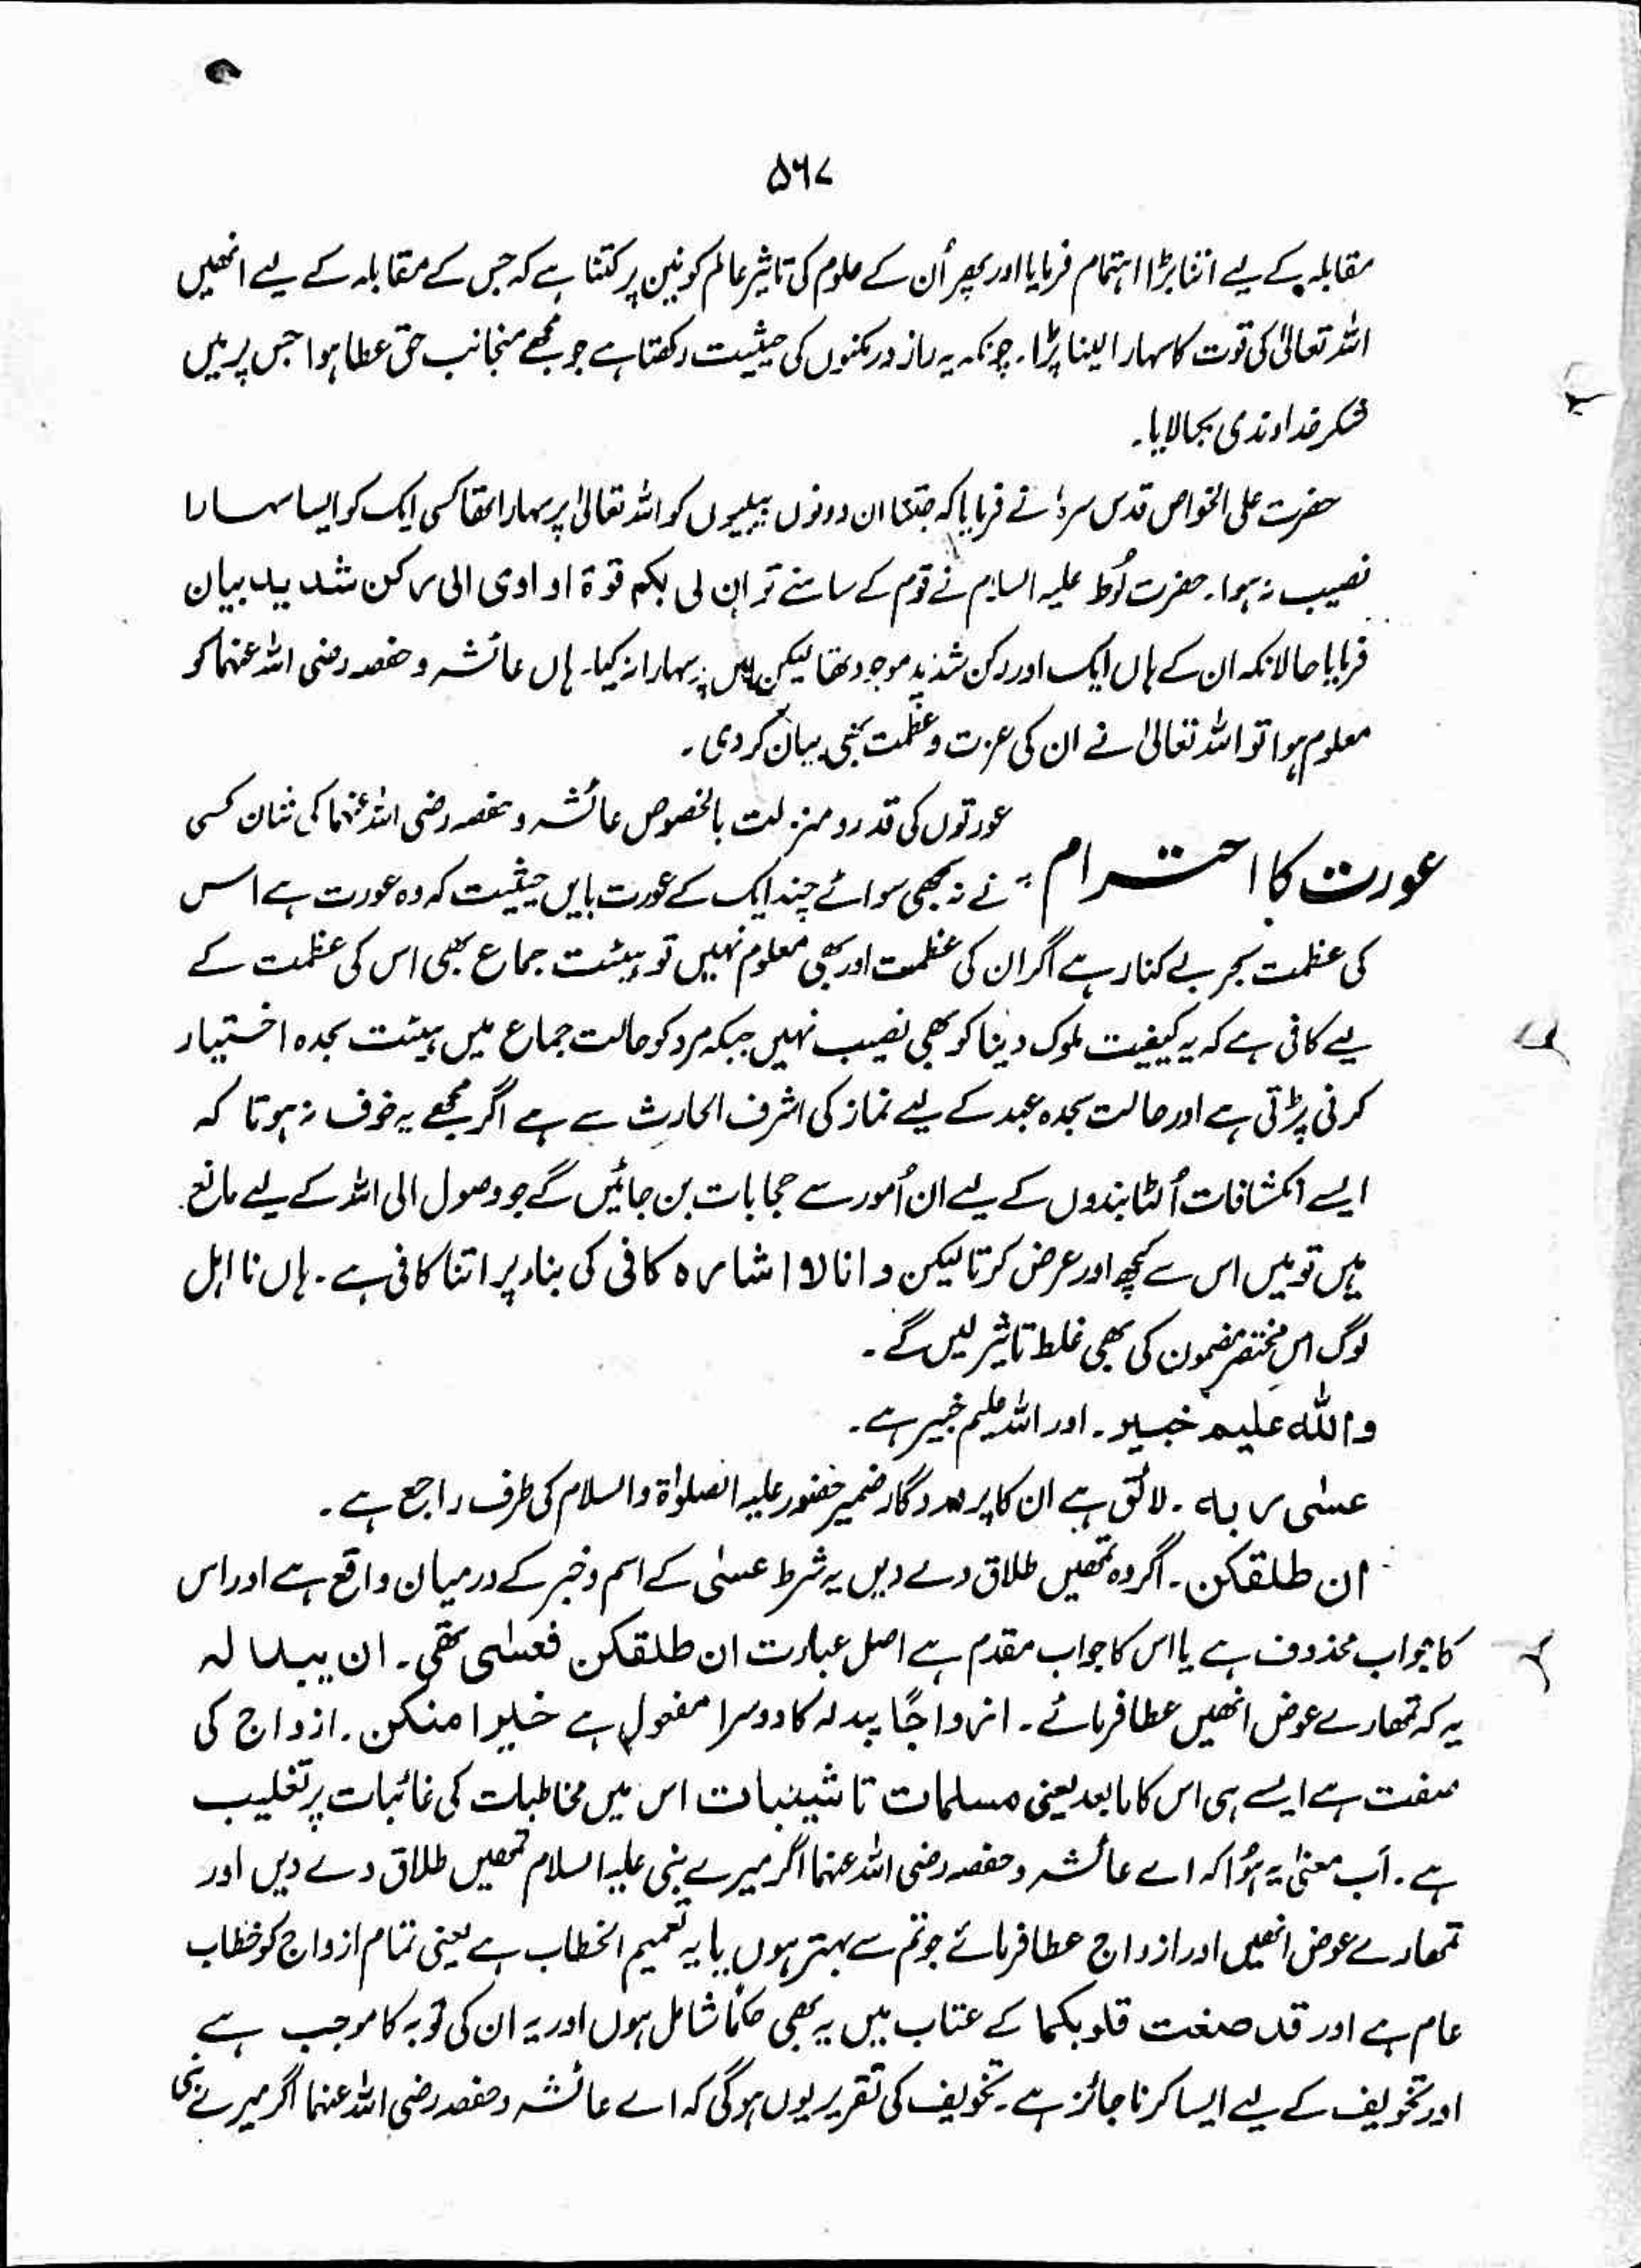 ۵۶۷
مقابلہ کے لیے اتنا بڑا اہتمام فرمایا اور پھر اُن کے علوم کی تاثیر عالم کونین پر کتنا ہے کہ جس کے مقابلہ کے لیے انھیں
اللہ تعالیٰ کی قوت کا سہارا لینا پڑا۔ چونکہ یہ راز در مکنوں کی حیثیت رکھتا ہے جو مجھے منجانب حق عطا ہوا جس پر میں
شکر خداوندی بجا لایا۔
حضرت علی الخواص قدس سرہٗ نے فرمایا کہ جتنا ان دونوں بیبیوں کو اللہ تعالیٰ پر سہارا تھا کسی ایک کو ایسا سہارا
نصیب نہ ہوا۔ حضرت لُوط علیہ السلام نے قوم کے سامنے تو ان لی بکم قوۃ او اوی الی رکن شدید بیان
فرمایا حالانکہ ان کے ہاں ایک اور رکن شدید موجود تھا لیکن اس پر سہارا نہ کیا۔ ہاں عائشہ و حفصہ رضی اللہ عنہما کو
معلوم ہوا تو اللہ تعالیٰ نے ان کی عزت و عظمت بھی بیان کر دی۔
عورتوں کی قدر و منزلت بالخصوص عائشہ و حفصہ رضی اللہ عنہما کی شان کسی
عورت کا احترام
نے نہ سمجھی سوائے چند ایک کے عورت بایں حیثیت کہ وہ عورت ہے اس
کی عظمت بحر بے کنار ہے اگر ان کی عظمت اور بھی معلوم نہیں تو ہیئت جماع بھی اس کی عظمت کے
لیے کافی ہے کہ یہ کیفیت ملوک دینا کو بھی نصیب نہیں جبکہ مرد کو حالت جماع میں ہیئت سجدہ اختیار
کرنی پڑتی ہے اور حالت سجدہ عبد کے لیے نماز کی اشرف الحارث سے ہے اگر مجھے یہ خوف نہ ہوتا کہ
ایسے انکشافات اُلٹا بندوں کے لیے ان اُمور سے حجابات بن جائیں گے جو وصول الی اللہ کے لیے مانع
ہیں تو میں اس سے کچھ اور عرض کرتا لیکن دانا لا اشارہ کافی کی بناء پر اتنا کافی ہے۔ ہاں نا اہل
لوگ اس مختصر مضمون کی بھی غلط تاثیر لیں گے۔
واللہ علیم خبیر۔ اور اللہ علیم خبیر ہے۔
عسٰی ربہ۔ لائق ہے ان کا پروردگار ضمیر حضور علیہ الصلوٰۃ والسلام کی طرف راجع ہے۔
ان طلقکن۔ اگر وہ تمھیں طلاق دے دیں یہ شرط عسٰی کے اسم و خبر کے درمیان واقع ہے اور اس
کا جواب محذوف ہے یا اس کا جواب مقدم ہے اصل عبارت ان طلقکن فعسٰی تھی۔ ان یبدلہ
یہ کہ تمھارے عوض انھیں عطا فرمائے۔ ازواجًا یبدلہ کا دوسرا مفعول ہے خیرا منکن۔ ازواج کی
صفت ہے ایسے ہی اس کا مابعد یعنی مسلمات تا ثیبات اس میں مخاطبات کی غائبات پر تغلیب
ہے۔ اب معنٰی یہ ہُوا کہ اے عائشہ و حفصہ رضی اللہ عنہما اگر میرے نبی علیہ السلام تمھیں طلاق دے دیں اور
تمھارے عوض انھیں اور ازواج عطا فرمائے جو تم سے بہتر ہوں یا یہ تعمیم الخطاب ہے یعنی تمام ازواج کو خطاب
عام ہے اور قد صغت قلوبکما کے عتاب میں یہ بھی حکمًا شامل ہوں اور یہ ان کی توبہ کا موجب ہے
اور تخویف کے لیے ایسا کرنا جائز ہے۔ تخویف کی تقریر یوں ہو گی کہ اے عائشہ و حفصہ رضی اللہ عنہما اگر میرے نبی